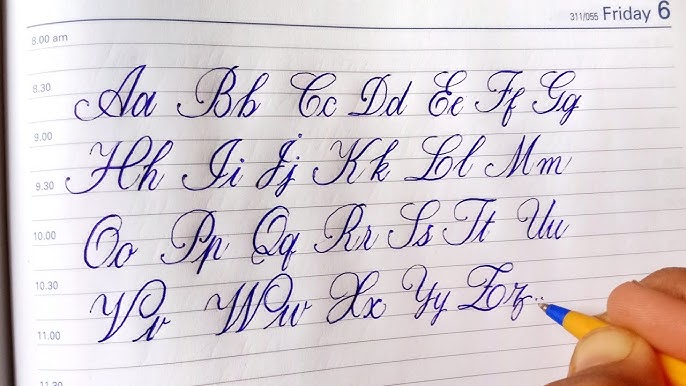 311/055 Friday 6
8.00 am
8.30
Aa Bb Cc Dd Ee Ff Gg
9.00
Hh Ii Jj Kk Ll Mm
9.30
10.00
Oo Pp Qq Rr Ss Tt Uu
10.30
Vv Ww Xx Yy Zz..
11.00